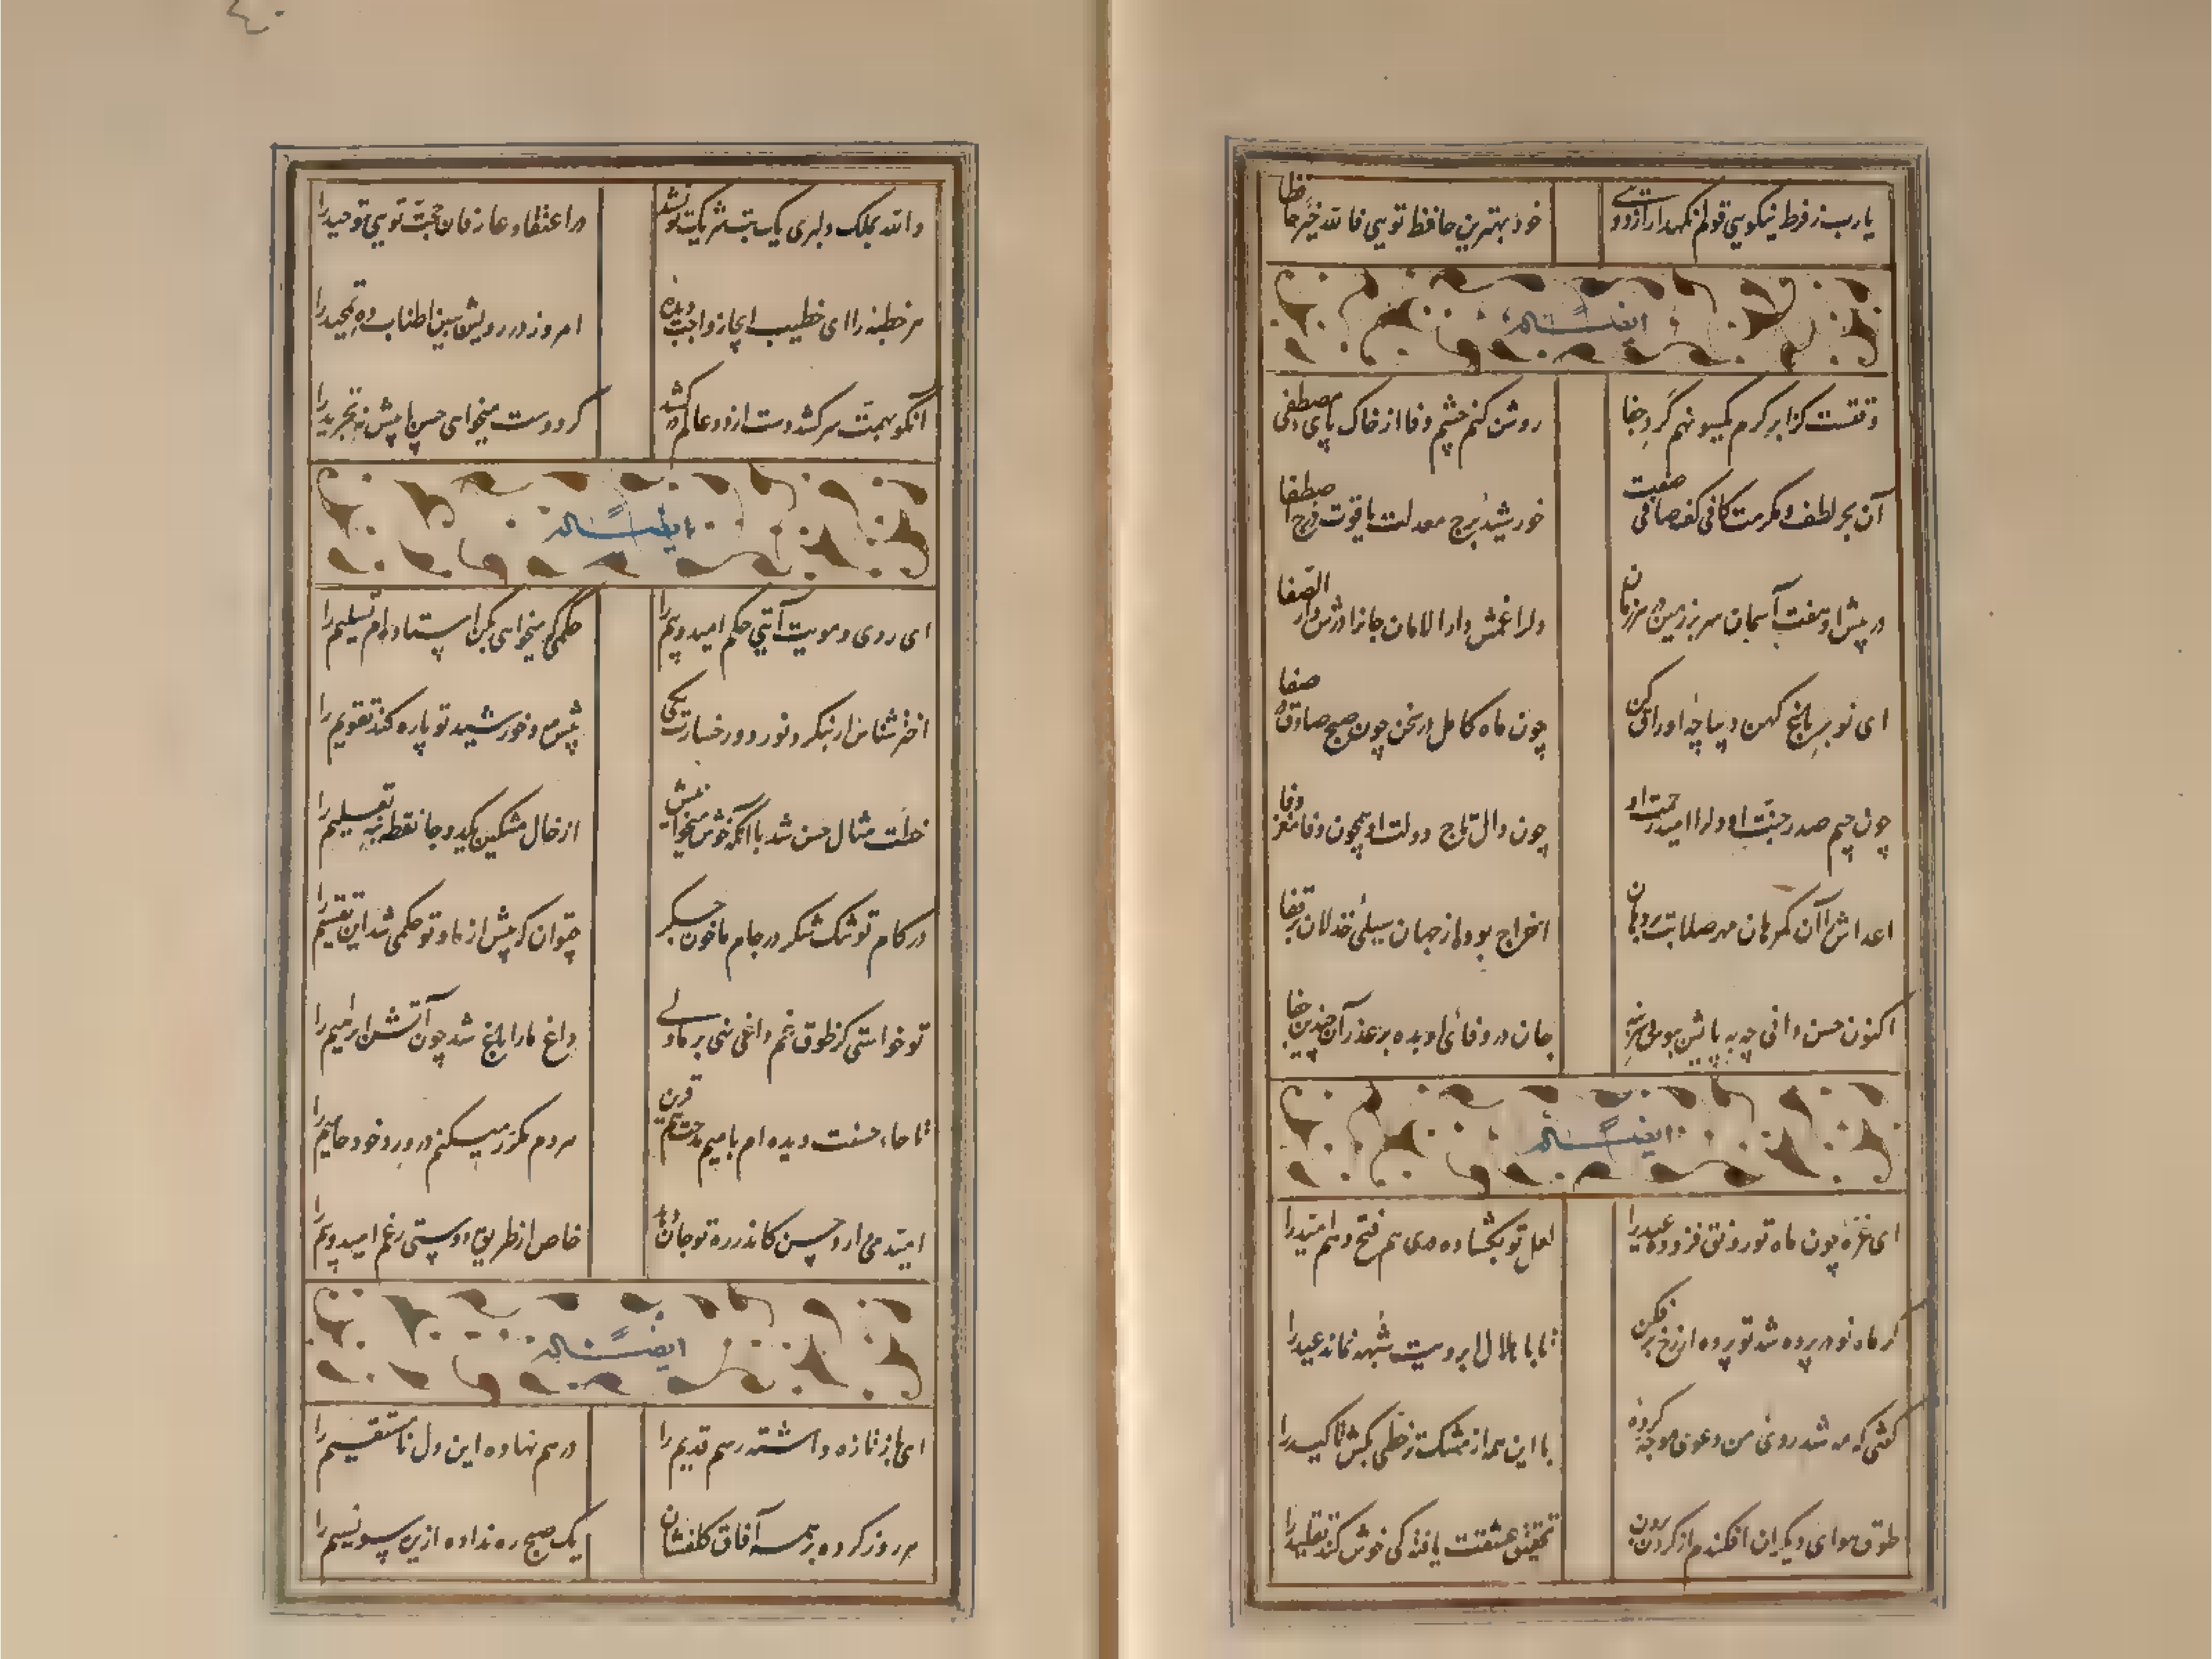 یارب ز فرط نیکویی قولم نگهدار از دوی
خود بهترین حافظ تویی فالله خیر حافظا
ایضا له
وقتست کز ابر کرم یکسو نهم گرد جفا
روشن کنم چشم وفا از خاک پای مصطفی
آن بحر لطف و مکرمت کافی کف صافی صفت
خورشید برج معدلت یاقوت درج اصطفا
در پیش او هفت آسمان سر بر زمین هر زمان
دلرا غمش دارالامان جانرا درش دارالصفا
ای نوبر باغ کهن دیباچه اوراق کن
چون ماه کامل در سخن چون صبح صادق در صفا
چون جیم صدر جنت او دلرا امید رحمت او
چون دال تاج دولت او همچون وفا مغز وفا
اعداش را آن گمرهان مهر صلابت بر دهان
اخراج بوده از جهان سیلی خذلان بر قفا
اکنون حسن دانی چه به پایش ببوس و سر بنه
جان در وفای او بده بر عذر آن چندین جفا
ایضا له
ای غره چون ماه تو رونق فزوده عید را
لعل تو بگشاده دری هم فتح و هم امید را
گر ماه نو در پرده شد تو پرده از رخ برفکن
تا با هلال ابرویت شبهه نماند عید را
گفتی که مه شد روی من دعوی موجه کرده
با این همه از مشک تر خطی بکش تاکید را
طوق هوای دیگران افکندم از گردن برون
تحقیق عشقت یافته کی خوش کند تقلید را
والله بملک دلبری یک بت شریکت تو نشد
در اعتقاد عارفان حجت تویی توحید را
هر خطبه را ای خطیب ایجاز واجب دیده
امروز در رویش ببین اطناب ده تمجید را
آنکو بهمت سر کشد دست از دو عالم در کشد
گر دوست میخواهی حسن پا پیش نه تجرید را
ایضا له
ای روی و مویت آیتی حکم امید و بیم را
حکمی که میخواهی بکن استاده ام تسلیم را
اختر شناس ار بنگرد نور دو رخسارت یکی
پیش مه و خورشید تو پاره کند تقویم را
خطت مثال حسن شد با آنکه خوش میخوانیش
از خال مشکین یکدو جا نقطه بنه تعلیم را
در کام تو تنگ شکر در جام ما خون جگر
چتوان که پیش از ما و تو حکمی شد این تقسیم را
تو خواستی کز طوق غم داغی نهی بر ما ولی
داغ مارا باغ شد چون آتش ابراهیم را
تا حاء حسنت دیده ام با میم مدحت هم قرن
هر دم مکرر میکنم در ورد خود حامیم را
امید می دارد حسن کاندر ره تو جان دهد
خاص از طریق دوستی رغم امید و بیم را
ایضا له
ای باز تازه داشته رسم قدیم را
در هم نهاده این دل نامستقیم را
هر روز کرده بر همه آفاق گلفشان
یک صبح ره نداده ازین سو نسیم را